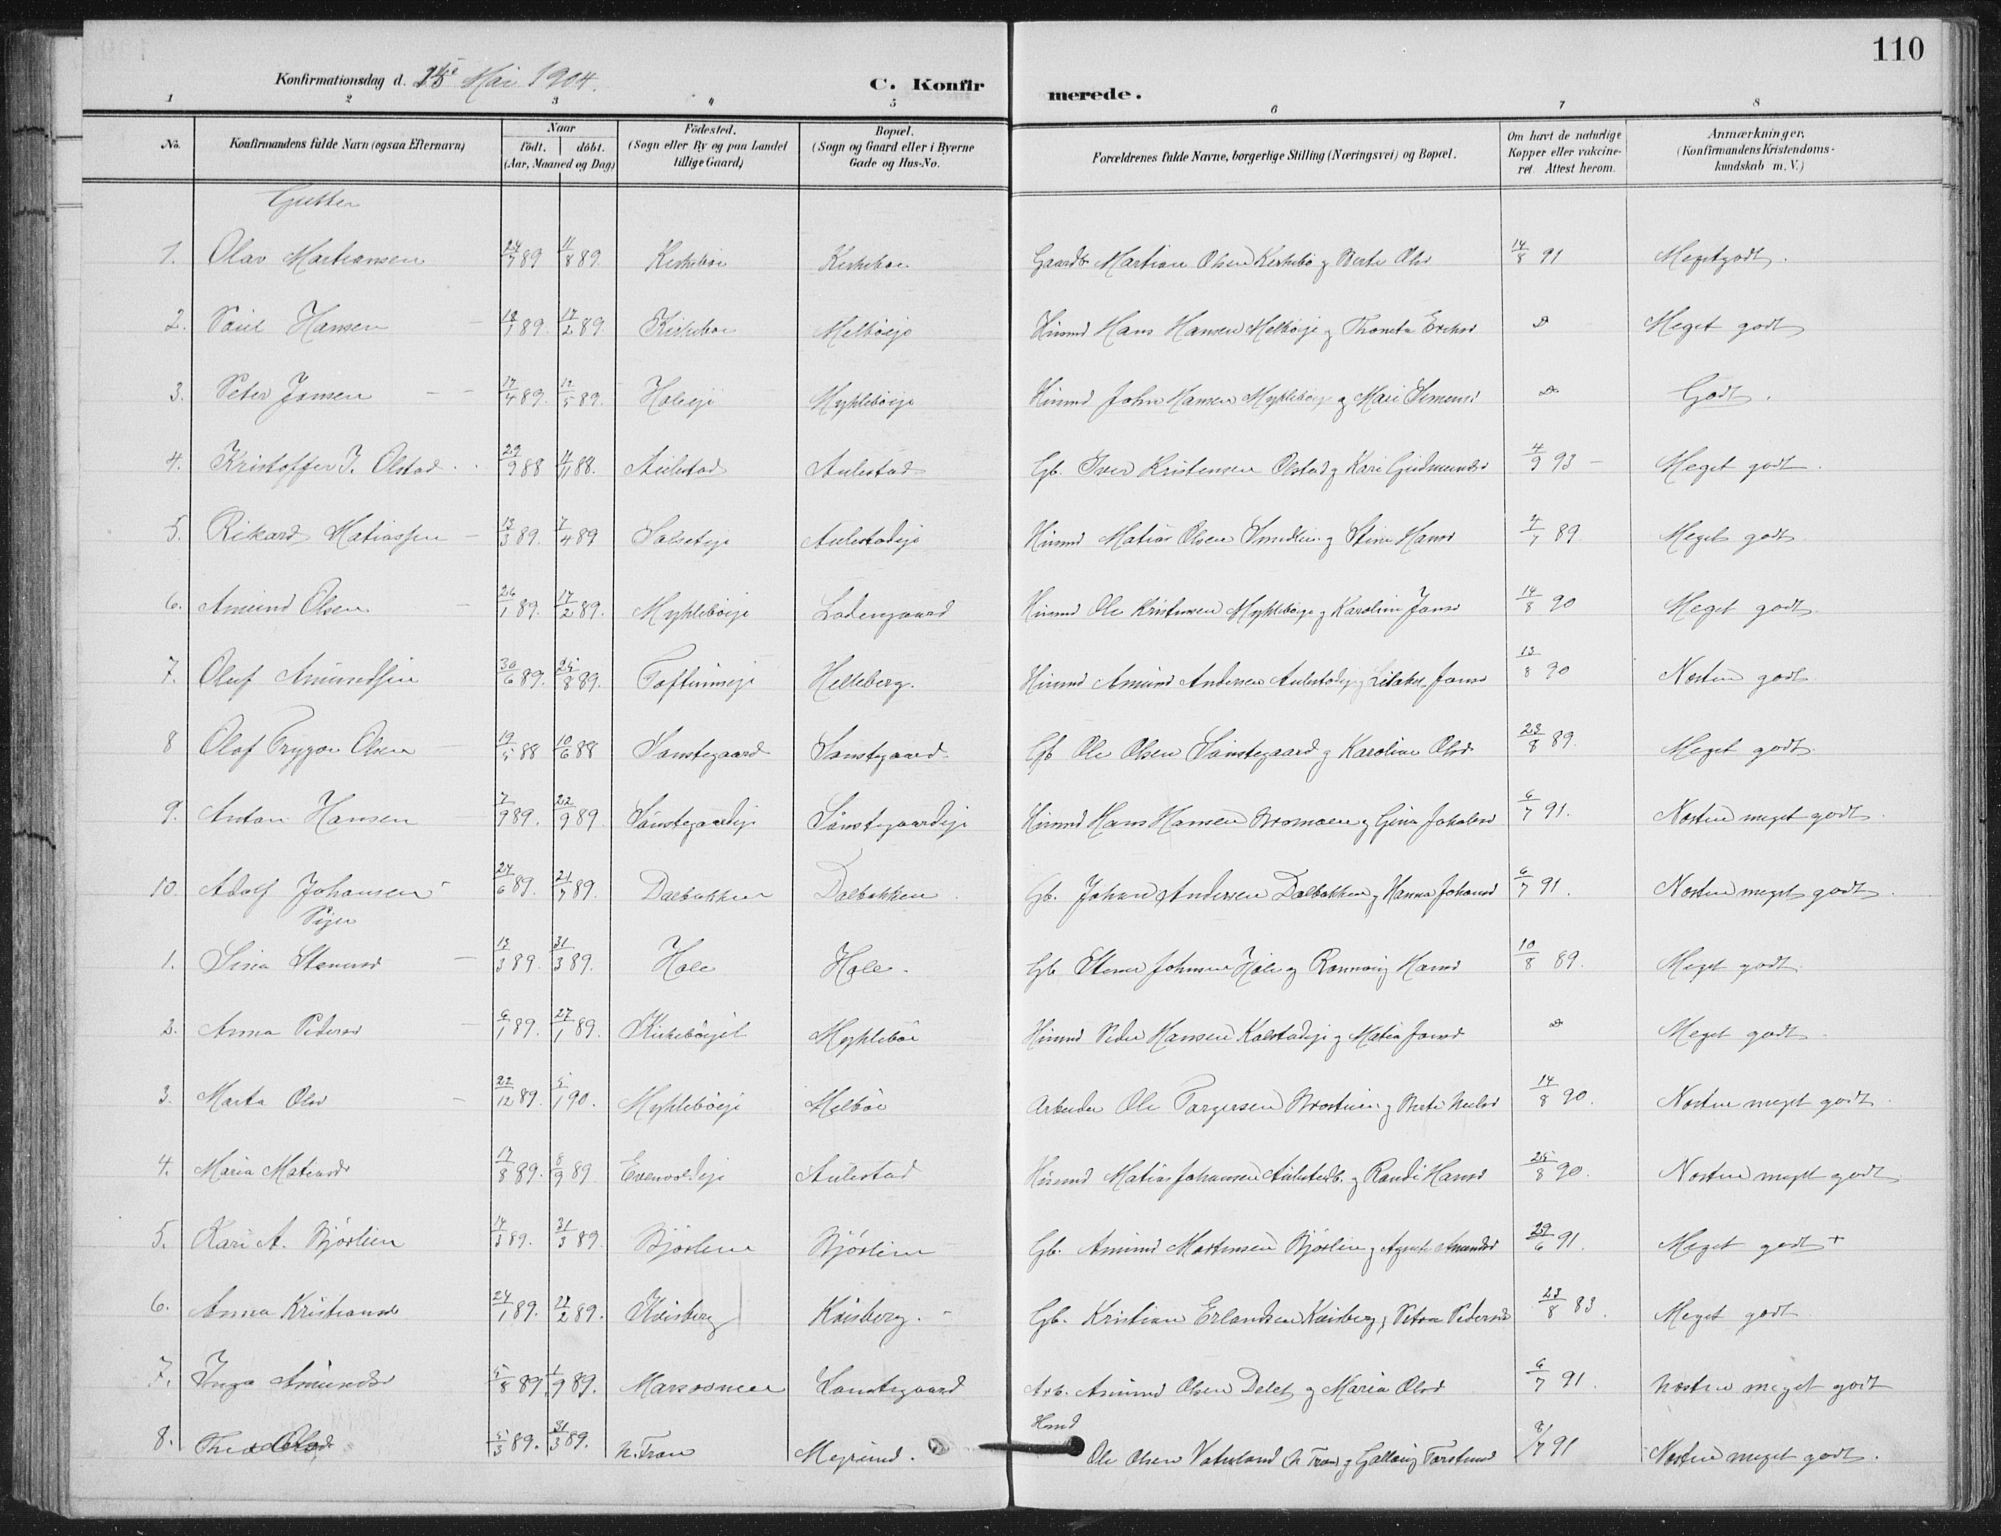 110
Konfirmationsdag d. 15de Mai 1904.
C. Konfirmerede.
1 2 3 4 5 6 7 8
No. Konfirmandens fulde Navn (ogsaa Efternavn) Naar født. døbt. (Aar, Maaned og Dag) Födested. (Sogn eller By og paa Landet tillige Gaard) Bopæl. (Sogn og Gaard eller i Byerne Gade og Hus-No. Forældrenes fulde Navne, borgerlige Stilling (Næringsvei) og Bopæl. Om havt de naturlige Kopper eller vakcineret. Attest herom. Anmærkninger, (Konfirmandens Kristendomskundskab m. V.)
Gutter
1. Olav Martiansen 24/7 89 11/8 89. Kirkebøe Kirkebøe Gaardb. Martian Olsen Kirkebø og Berte Olsd 14/8 91 Meget godt.
2. Paul Hansen 18/1 89. 17/2 89. Kirkebøe Melbøeje Husmd Hans Hansen Melbøeje og Thonete Ericksd Do Meget godt
3. Peter Jonsen 17/4 89. 12/5 89. Holeeje Myklebøeje Husmd John Hansen Myklebøeje og Mari Simensd Do Godt.
4. Kristoffer I. Olstad 29/9 88 4/11 88. Aulestad Aulestad Gb. Iver Kristensen Olstad og Kari Gudmundsd 4/9 93 Meget godt.
5. Rikard Matiassen 13/3 89. 7/4 89 Solseteje Aulestadeje Husmd Matias Olsen Smedlien og Stine Hansd 4/7 89 Meget godt
6. Amund Olsen 26/1 89. 17/2 89. Myklebøeje Ladengaard Husmd Ole Kristensen Myklebøeje og Karoline Jonsd 14/8 90 Meget godt.
7. Oluf Amundsen 30/6 89. 25/8 89. Toftumseje Helleberg. Husmd Amund Andersen Aulestadeje og Jonsd 13/8 90 Næsten godt
8 Olof Trygve Olsen 19/5 88 10/6 88 Sønstegaard Sønstegaard Gb Ole Olsen Sønstegaard og Karoline Olsd 23/8 89. Meget godt
9. Anton Hansen 7/9 89. 22/9 89 Sønstegaardeje Sønstegaardeje Husmd Hans Hansen Bromoen og Gina Jakobsd 6/7 91. Næsten meget godt.
10. Adolf Johansen 24/6 89. 21/7 89. Dalbakken Dalbakken Gb. Johan Andersen Dalbakken og Hanna Johansd 6/7 91. Næsten meget godt.
Piger
1. Sina Stenersd 13/3 89. 31/3 89. Hole Hole. Gb Stener Johnsen Hole og Rønnaug Hansd 10/8 89. Meget godt.
2. Anna Pedersd 6/1 89. 27/1 89. Kirkebøejet Myklebøe Husmd Peder Hansen Kalstadeje og Matea Jonsd Do Meget godt
3. Marta Olsd 22/12 89. 5/1 90. Myklebøeje Melbøe Arbeider Ole Torgersen Brostuen og Berte Neelsd 14/8 90. Næsten meget godt
4. Maria Matiasd 17/8 89. 8/9 89 Evenvoldeje Aulestad Husmd Matias Johansen Aulestadb. og Randi Hansd 25/8 90. Næsten meget godt
5. Kari A. Bjørlien 14/3 89. 31/3 89 Bjørlien Bjørlien Gb. Amund Mortensen Bjørlien og Agnete Amundsd 29/6 91. Meget godt +
6. Anna Kristiansd 24/1 89. 17/2 89. Kvisberg Kvisberg. Gb. Kristian Erlandsen Kvisberg, Petra Pedersd 23/8 83. Meget godt
7. Inga Amundsd 5/8 89 1/9 89. Marsosmoen Sønstegaard Arb. Amund Olsen Delet og Maria Olsd 6/7 91 Næsten meget godt
8. Thea Olsd 5/3 89. 31/3 89. n. Fron Mejeriud. Hmd Ole Olsen Vaterland (n Fron) og Gallaug Torstensd 8/7 91 Næsten meget godt.